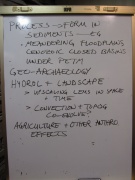 PROCESS → FORM IN
SEDIMENTS — EG
• MEANDERING FLOODPLAINS
CENOZOIC CLOSED BASINS
UNDER PETM
GEO-ARCHAEOLOGY
HYDROL + LANDSCAPE
> UPSCALING LEMS IN SPACE
+ TIME
> CONVECTION + TOPOG
CO-EVOLVE?
AGRICULTURE + OTHER ANTHRO
EFFECTS